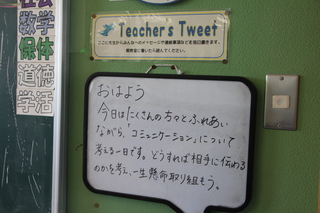 社会
数学
保体
道徳
学活
Teacher's Tweet
おはよう
今日はたくさんの方々とふれあい
ながら、「コミュニケーション」について
考える一日です。どうすれば相手に伝わる
のかを考え、一生懸命取り組もう。